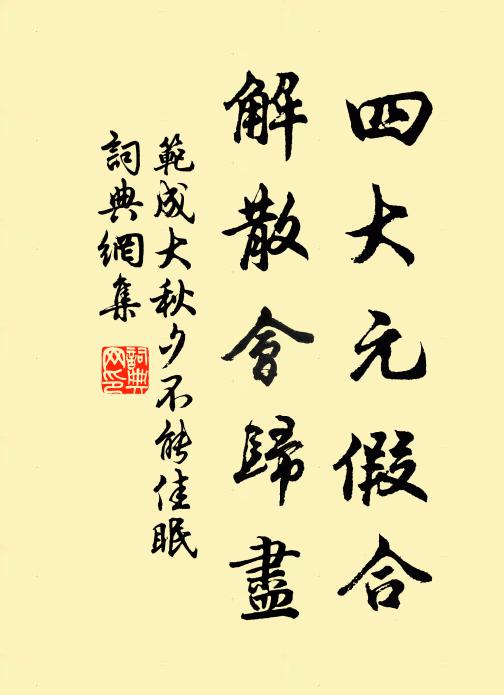 四大元假合
解散會歸盡
範成大秋夕不能佳眠
詞典網集
詞典網印